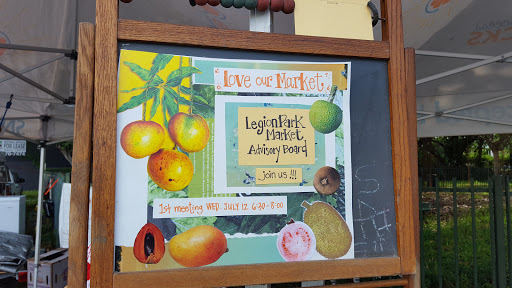 Love our Market
Legion Park
Market
Advisory Board
join us !!!
1st meeting WED. JULY 12 6:30-8:00
FOR LEASE